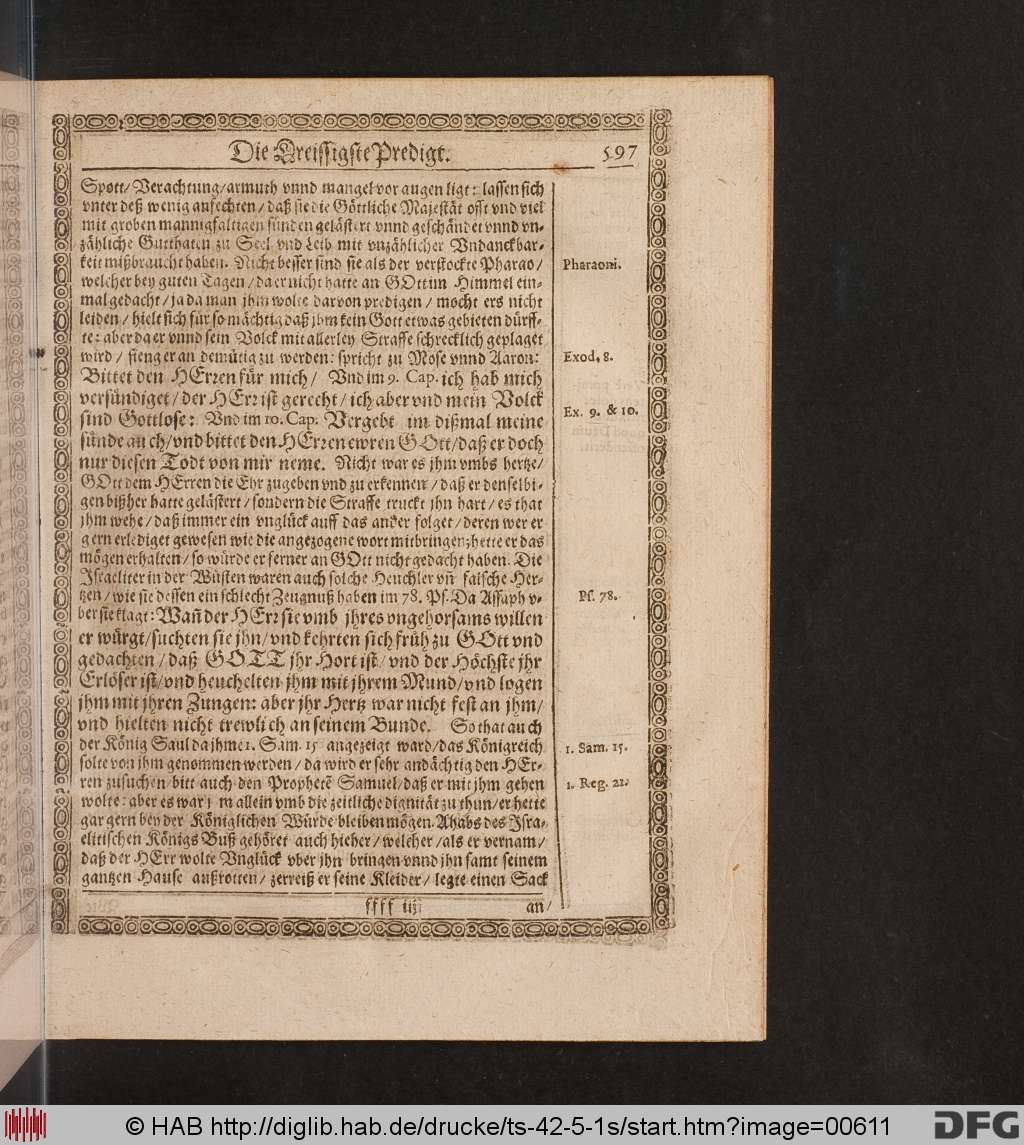 Die Dreissigste Predigt. 597
Spott/ Verachtung/ armuth vnnd mangel vor augen ligt: lassen sich
vnter deß wenig anfechten/ daß sie die Göttliche Majestät offt vnd viel
mit groben mannigfaltigen sünden gelästert vnnd geschändet vnnd vn-
zähliche Gutthaten zu Seel vnd Leib mit vnzählicher Vndanckbar-
keit mißbraucht haben. Nicht besser sind sie als der verstockte Pharao/
Pharaoni.
welcher bey guten Tagen/ da er nicht hatte an GOtt im Himmel ein-
mal gedacht/ ja da man jhm wolte darvon predigen/ mocht ers nicht
leiden/ hielt sich für so mächtig daß jhm kein Gott etwas gebieten dürff-
te: aber da er vnnd sein Volck mit allerley Straffe schrecklich geplaget
wird/ fieng er an demütig zu werden: spricht zu Mose vnnd Aaron:
Exod. 8.
Bittet den HErren für mich/ Vnd im 9. Cap. ich hab mich
versündiget/ der HErr ist gerecht/ ich aber vnd mein Volck
Ex. 9. & 10.
sind Gottlose: Vnd im 10. Cap. Vergebt im dißmal meine
sünde auch/ vnd bittet den HErren ewren GOtt/ daß er doch
nur diesen Todt von mir neme. Nicht war es jhm vmbs hertze/
GOtt dem HErren die Ehr zugeben vnd zu erkennen/ daß er denselbi-
gen bißher hatte gelästert/ sondern die Straffe truckt jhn hart/ es that
jhm wehe/ daß immer ein vnglück auff das ander folget/ deren wer er
gern erlediget gewesen wie die angezogene wort mitbringen; hette er das
mögen erhalten/ so würde er ferner an GOtt nicht gedacht haben. Die
Israeliter in der Wüsten waren auch solche Heuchler vñ falsche Her-
tzen/ wie sie dessen ein schlecht Zeugnuß haben im 78. Ps. Da Assaph v-
Ps. 78.
ber sie klagt: Wañ der HErr sie vmb jhres vngehorsams willen
er würgt/ suchten sie jhn/ vnd kehrten sich früh zu GOtt vnd
gedachten/ daß GOTT jhr Hort ist/ vnd der Höchste jhr
Erlöser ist/ vnd heuchelten jhm mit jhrem Mund/ vnd logen
jhm mit jhren Zungen: aber jhr Hertz war nicht fest an jhm/
vnd hielten nicht trewlich an seinem Bunde. So that auch
der König Saul da jhme 1. Sam. 15 angezeigt ward/ das Königreich
1. Sam. 15.
solte von jhm genommen werden/ da wird er sehr andächtig den HEr-
ren zusuchen bitt auch den Prophetẽ Samuel/ daß er mit jhm gehen
1. Reg. 21.
wolte: aber es war jm allein vmb die zeitliche dignität zu thun/ er hette
gar gern bey der Königlichen Würde bleiben mögen. Ahabs des Isra-
elitischen Königs Buß gehöret auch hieher/ welcher/ als er vernam/
daß der HErr wolte Vnglück vber jhn bringen vnnd jhn samt seinem
gantzen Hause außrotten/ zerreiß er seine Kleider/ legte einen Sack
ffff iij an/
© HAB http://diglib.hab.de/drucke/ts-42-5-1s/start.htm?image=00611
DFG